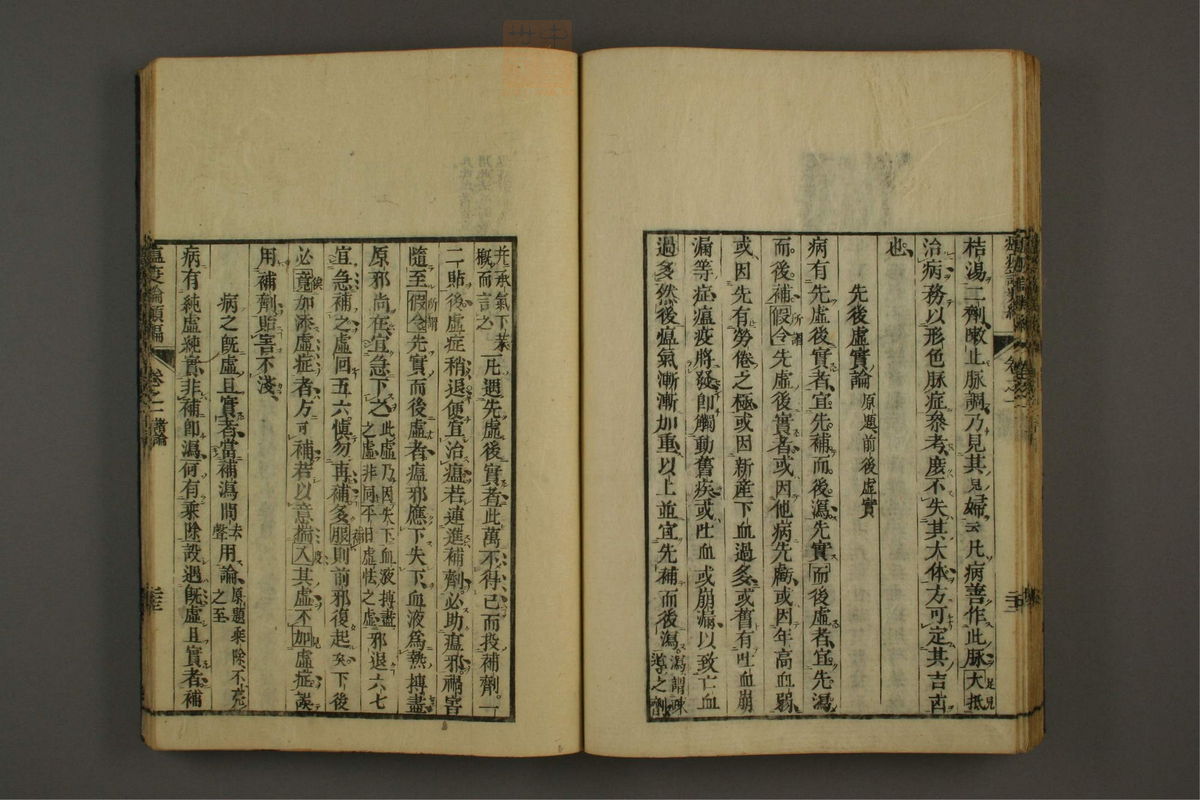 桔湯二劑嗽止脉調乃見其見婦云凡病善作此脉大抵
治病務以形色脉症參考庶不失其大体方可定其吉凶
也
先後虛實論 原題前後虛實
病有先虛後實者宜先補而後瀉先實而後虛者宜先瀉
而後補假令先虛後實者或因他病先虧或因年高血弱
或因先有勞倦之極或因新産下血過多或舊有吐血崩
漏等症瘟疫將發即觸動舊疾或吐血或崩漏以致亡血
過多然後瘟氣漸漸加重以上並宜先補而後瀉瀉謂疎
導之劑
并承氣下藥
概而言之凡遇先虛後實者此萬不得已而投補劑一
二貼後虛症稍退便宜治瘟若連進補劑必助瘟邪禍害
隨至假令先實而後虛者瘟邪應下失下血液爲熱搏盡
原邪尚在宜急下之此虛乃因失下血液搏盡
之虛非同平日虛怯之虛邪退六七
宜急補之虛回五六愼勿再補多服則前邪復起矣下後
必竟加添虛症者方可補若以意揣入其虛不加虛症誤
用補劑貽害不淺
病之旣虛且實者當補瀉間去
聲用論原題乘除不
之至
病有純虛純實非補即瀉何有乘除設遇旣虛且實者補
瘟疫論類編
卷之一 諸論